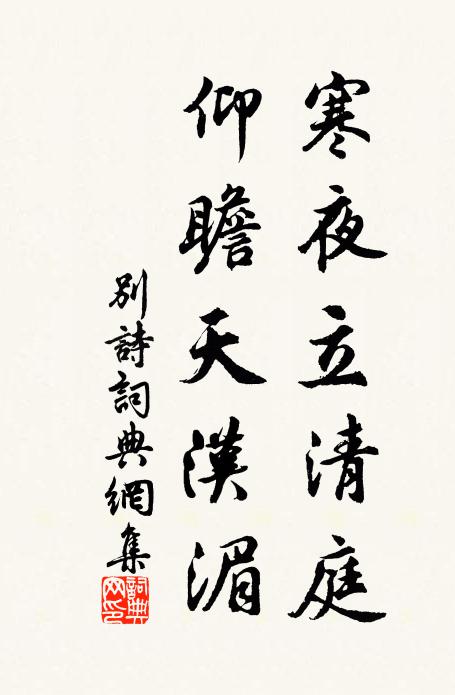 寒夜立清庭
仰瞻天漢湄
別詩詞典網集
詞典網印